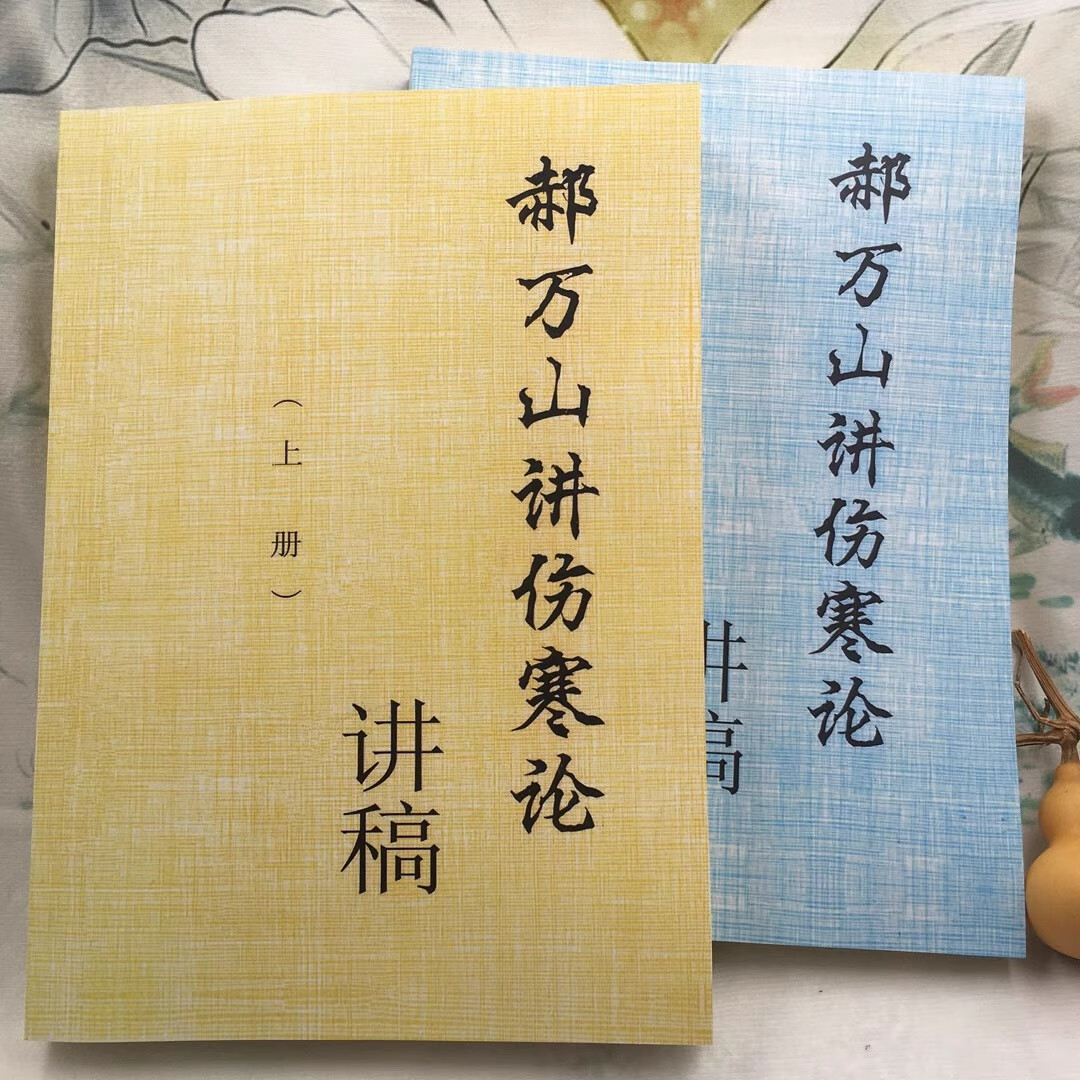 郝万山讲伤寒论
讲稿
（上册）
郝万山讲伤寒论
讲稿